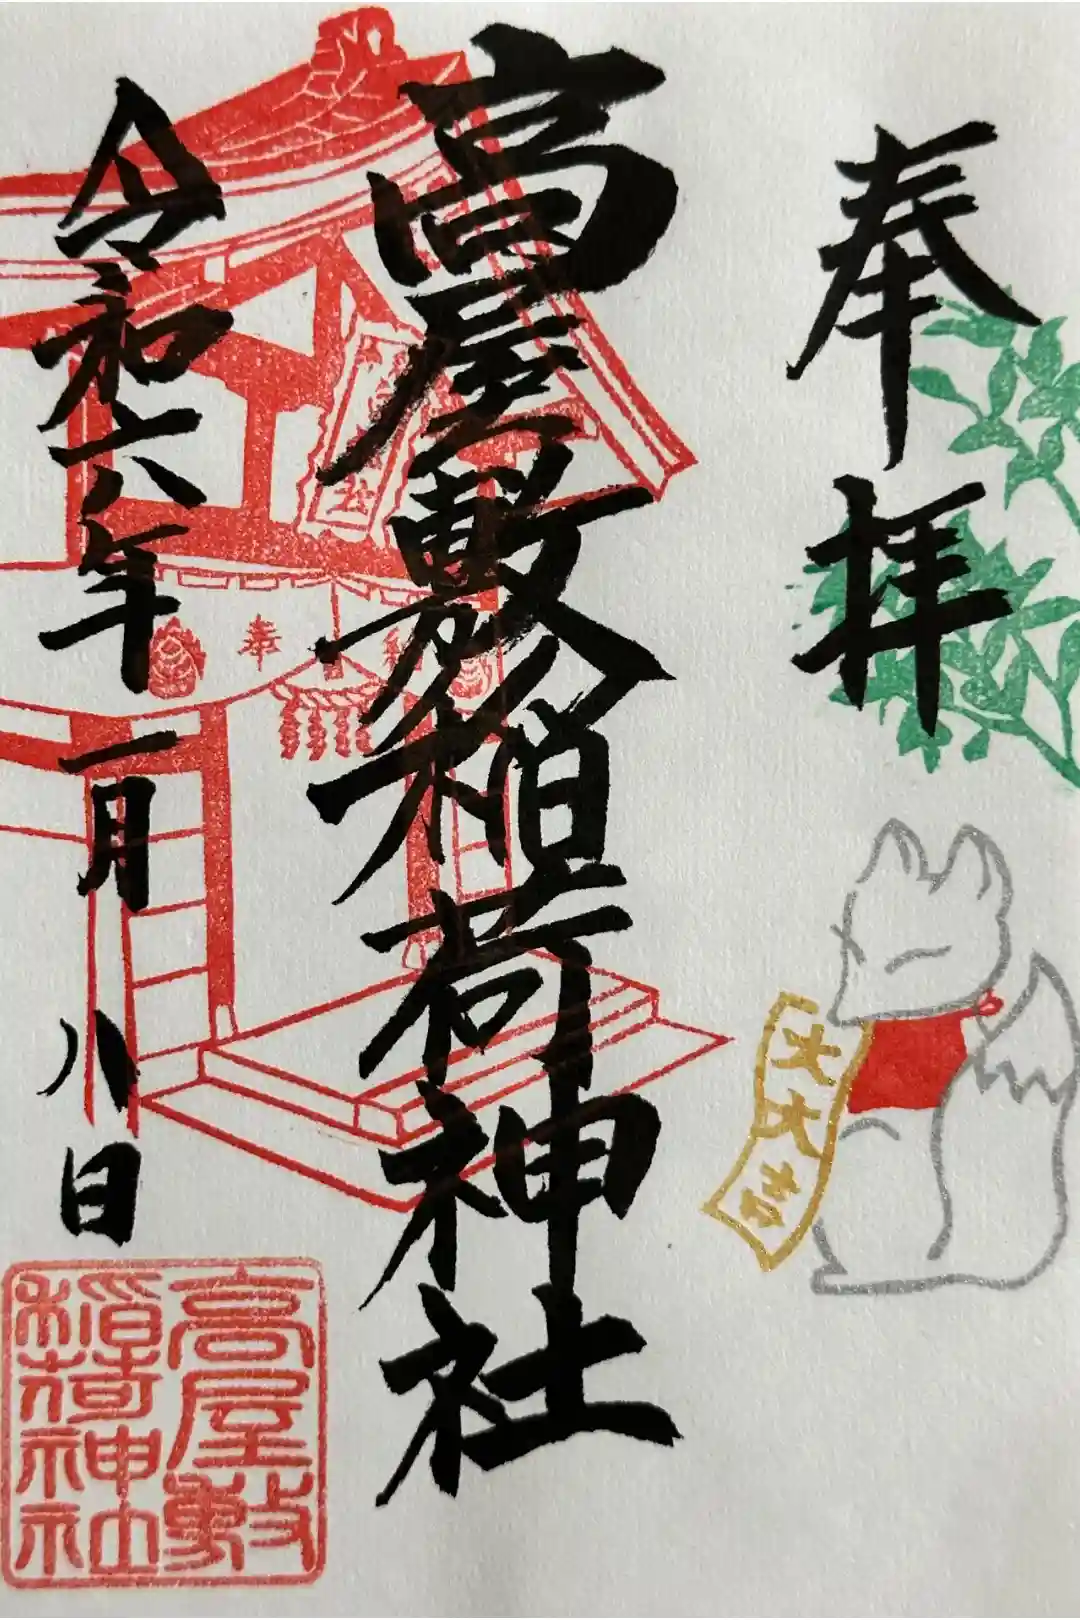 奉拝
高屋敷稲荷神社
令和六年一月八日
大大吉
奉
高屋敷
稲荷神社